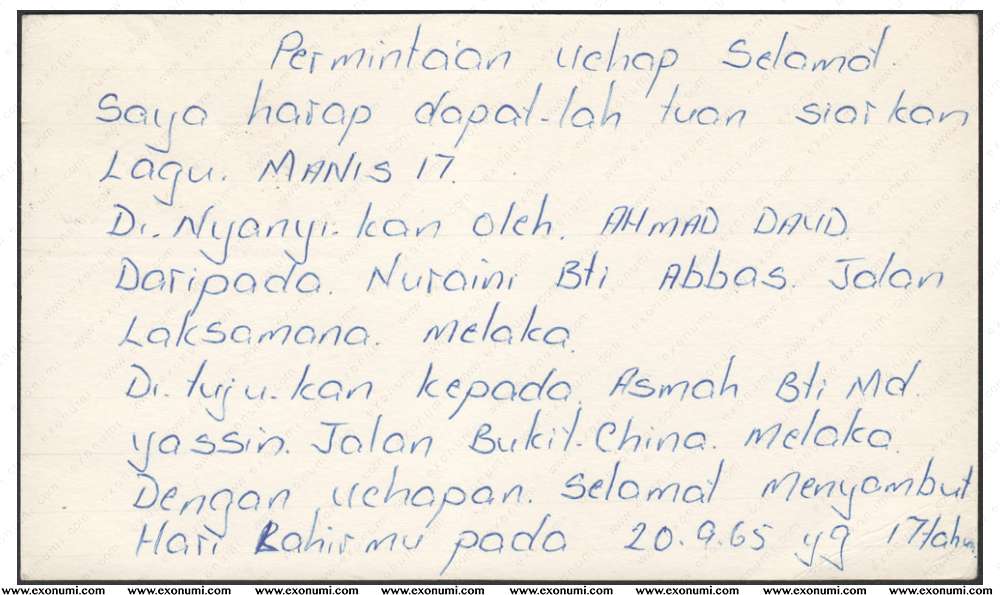 Permintaan Uchap Selamat.
Saya harap dapat-lah tuan siarkan
Lagu. MANIS 17.
Di.Nyanyi-kan oleh. AHMAD DAUD.
Daripada. Nuraini Bti Abbas. Jalan
Laksamana. Melaka.
Di.tuju.kan kepada. Asmah Bti Md.
Yassin. Jalan Bukit-China. Melaka.
Dengan Uchapan. Selamat Menyambut
Hari Lahirmu pada 20.9.65 yg 17 tahun
www.exonumi.com www.exonumi.com www.exonumi.com www.exonumi.com www.exonumi.com www.exonumi.com www.exonumi.com www.exonumi.com